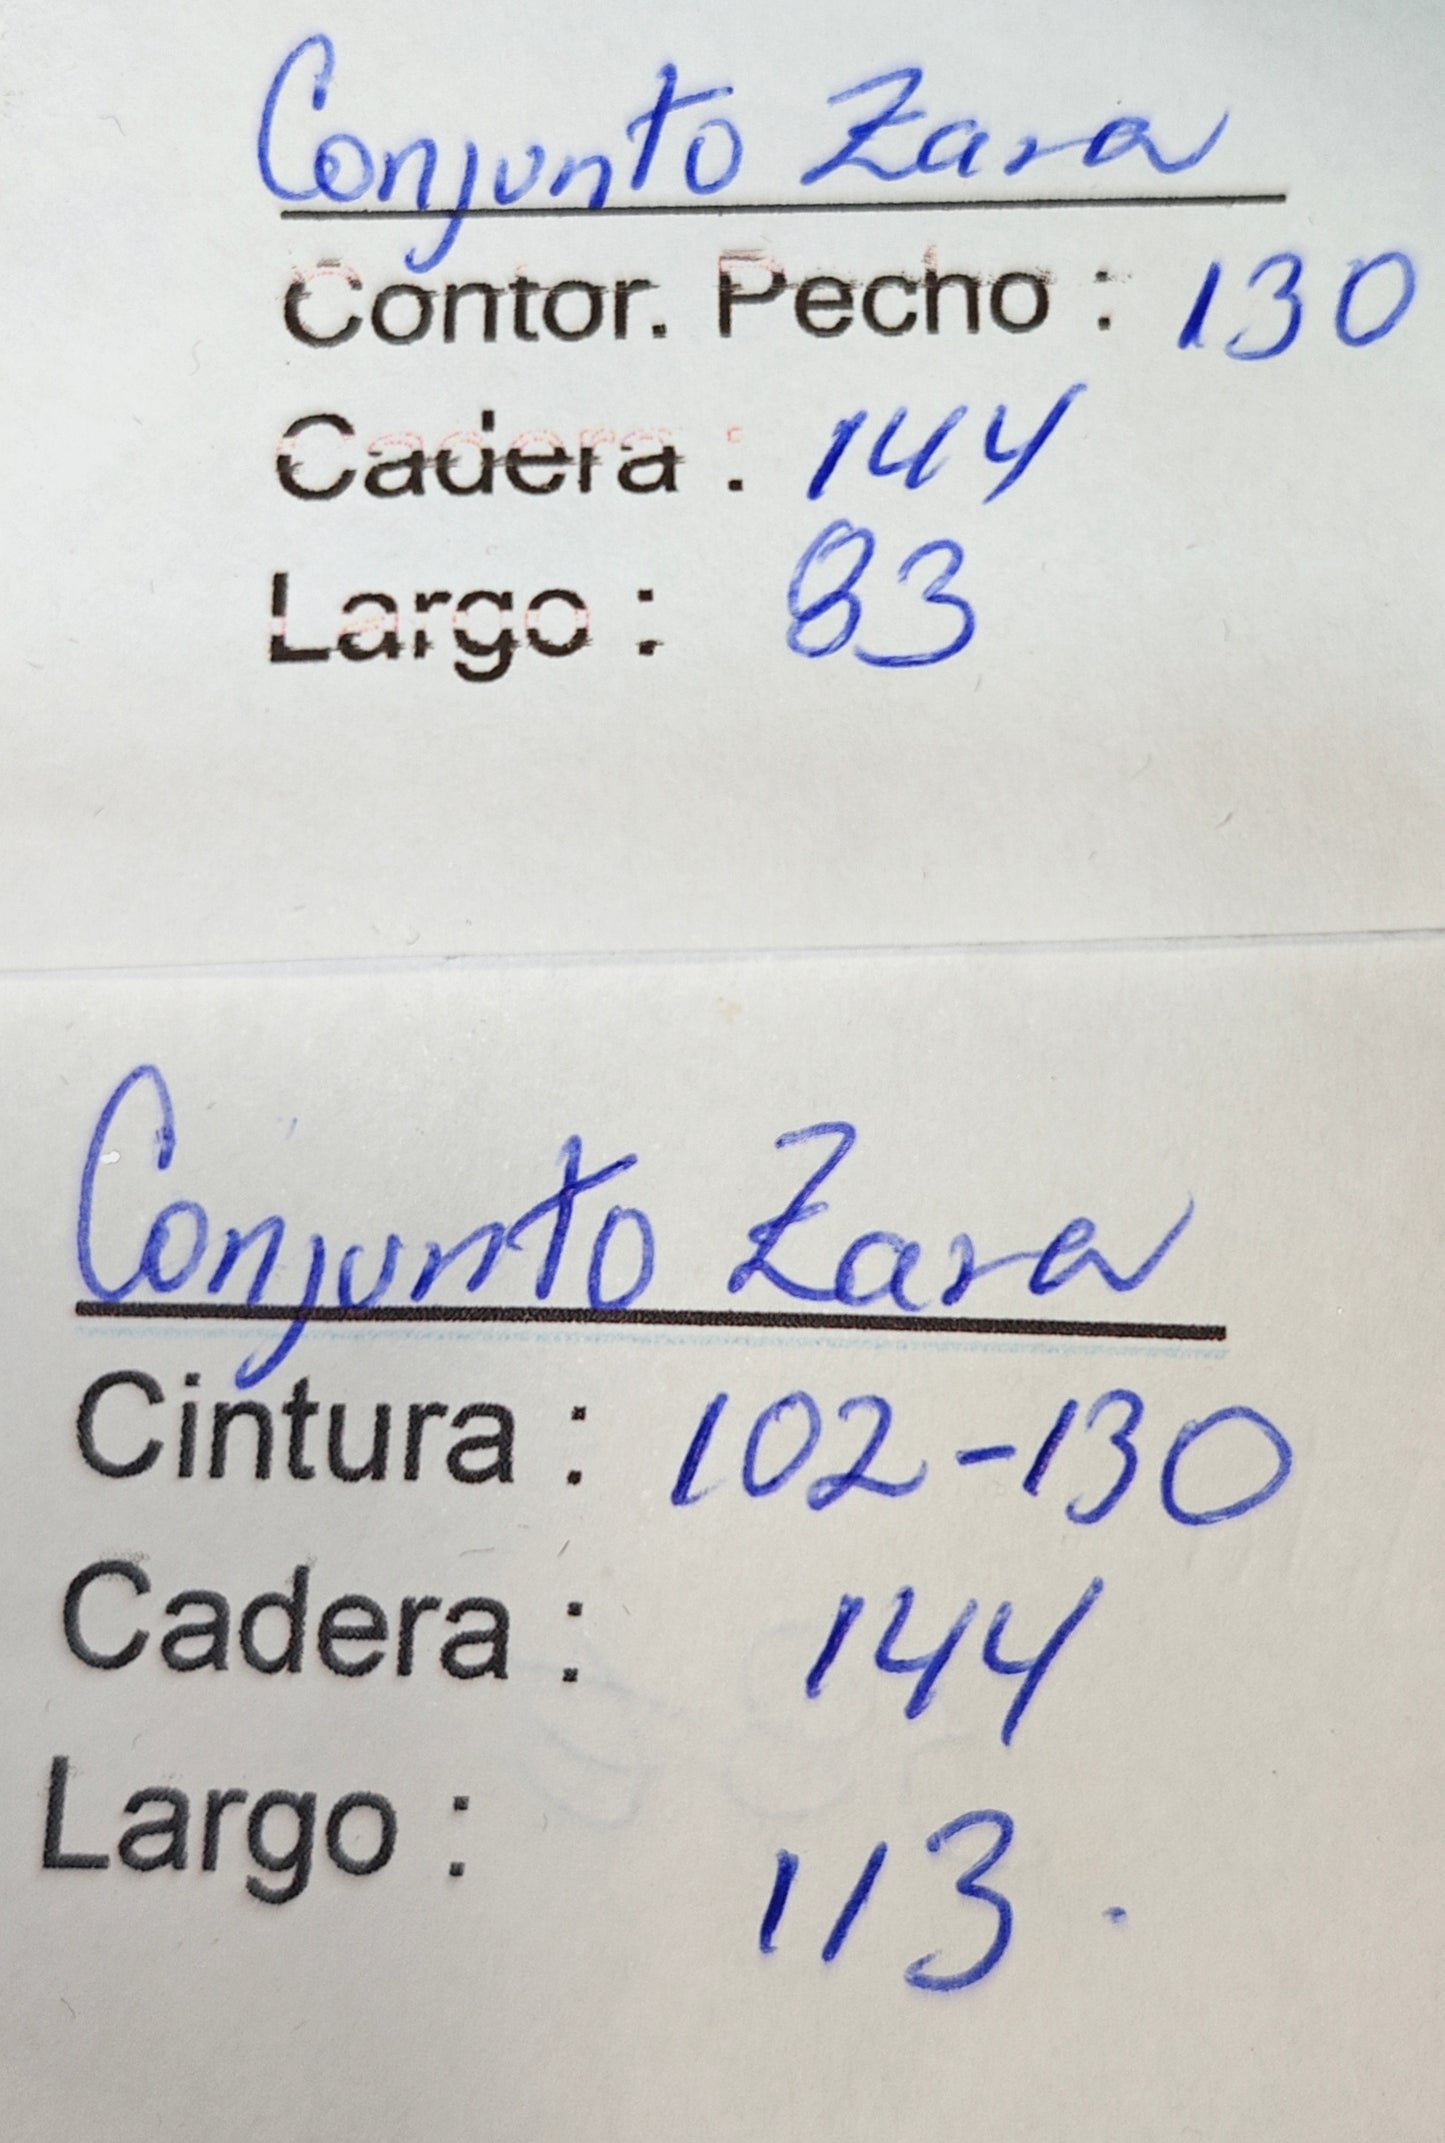 Conjunto Zara
Contor. Pecho : 130
Cadera : 144
Largo : 83
Conjunto Zara
Cintura : 102-130
Cadera : 144
Largo : 113.